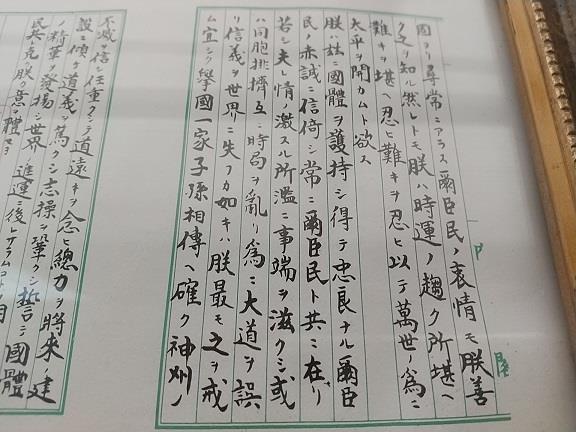 固ヨリ尋常ニアラス爾臣民ノ衷情モ朕善
ク之ヲ知ル然レトモ朕ハ時運ノ趨ク所堪ヘ
難キヲ堪ヘ忍ヒ難キヲ忍ヒ以テ萬世ノ爲ニ
太平ヲ開カムト欲ス
朕ハ茲ニ國體ヲ護持シ得テ忠良ナル爾臣
民ノ赤誠ニ信倚シ常ニ爾臣民ト共ニ在リ
若シ夫レ情ノ激スル所濫ニ事端ヲ滋クシ或
ハ同胞排擠互ニ時局ヲ亂リ爲ニ大道ヲ誤
リ信義ヲ世界ニ失フカ如キハ朕最モ之ヲ戒
ム宜シク擧國一家子孫相傳ヘ確ク神州ノ
不滅ヲ信シ任重クシテ道遠キヲ念ヒ總力ヲ將來ノ建
設ニ傾ケ道義ヲ篤クシ志操ヲ鞏クシ誓テ國體
ノ精華ヲ發揚シ世界ノ進運ニ後レサラムコトヲ
民其レ克ク朕カ意ヲ體セヨ